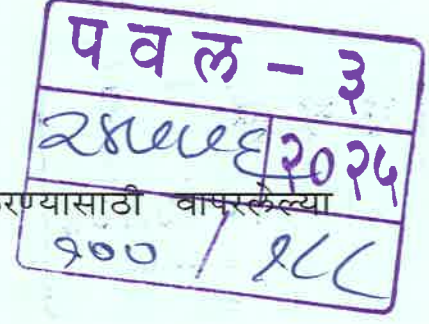 प व ल - ३
२४७७६ २०२५
रण्यासाठी वापरलेल्या
१०० / १८८